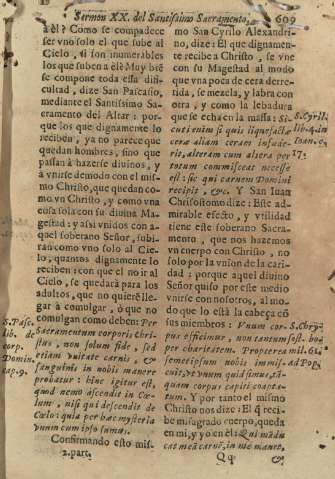 Sermon XX. del Santissimo Sacramento, 609
à èl? Como se compadece
ser vno solo el que sube al
Cielo, si son inumerables
los que suben a èl? Muy biẽ
se compone toda essa difi-
cultad, dize San Pascasio,
mediante el Santissimo Sa-
cramento del Altar: por-
que los que dignamente lo
reciben, ya no parece que
quedan hombres, sino que
passan à hazerse diuinos, y
à vnirse demodo con el mis-
mo Christo, que quedan co-
mo vn Christo, y como vna
cosa sola con su diuina Ma-
gestad: y assi vnidos con a-
quel soberano Señor, subi-
ràn como vno solo al Cie-
lo, quantos dignamente lo
reciben: con que el no ir al
Cielo, se quedarà para los
adultos, que no quierẽ lle-
gar à comulgar, ò que no
comulgan como deben: Per
Sacramentum corporis Chri-
stus, non solum fide, sed
etiam vnitate carnis, &
sanguinis in nobis manere
probatur: hinc igitur est,
quod nemo ascendit in Cœ-
lum, nisi qui descendit de
Cœlo: quia per hæc mysteria
vnum cum ipso sumus.
Confirmando esto mis-
2. part.
S. Pasc.
lib. de
corp.
Domin.
cap. 9.
mo San Cyrilo Alexandri-
no, dize: El que dignamen-
te recibe a Christo, se vne
con su Magestad al modo
que vna poca de cera derre-
tida, se mezcla, y labra con
otra, y como la lebadura
que se echa en la massa: Si-
cut enim si quis liquefactæ
ceræ aliam ceram infude-
rit, alteram cum altera per
totum commisceat necesse
est: sic qui carnem Domini
recipit, &c. Y San Iuan
Chrisostomo dize: Este ad-
mirable efecto, y vtilidad
tiene este soberano Sacra-
mento, que nos hazemos
vn cuerpo con Christo, no
solo por la vniõn de la cari-
dad: porque aquel diuino
Señor quiso por este medio
vnirse con nosotros, al mo-
do que lo està la cabeça cõ
sus miembros: Vnum cor-
pus efficimur, non tantum
per charitatem. Propterea
semetipsum nobis immis-
cuit, vt vnum quid simus, tã-
quam corpus capiti coapta-
tum. Y por tanto el mismo
Christo nos dize: El q̃ reci-
be mi sagrado cuerpo, queda
en mi, y yo en èl: Qui mãdu
cat meã carnẽ, in me manet,
Qq &
S. Cyril.
lib. 4. in
Ioan. c.
17.
S. Chry-
sost. ho.
mil. 61.
ad Pop.